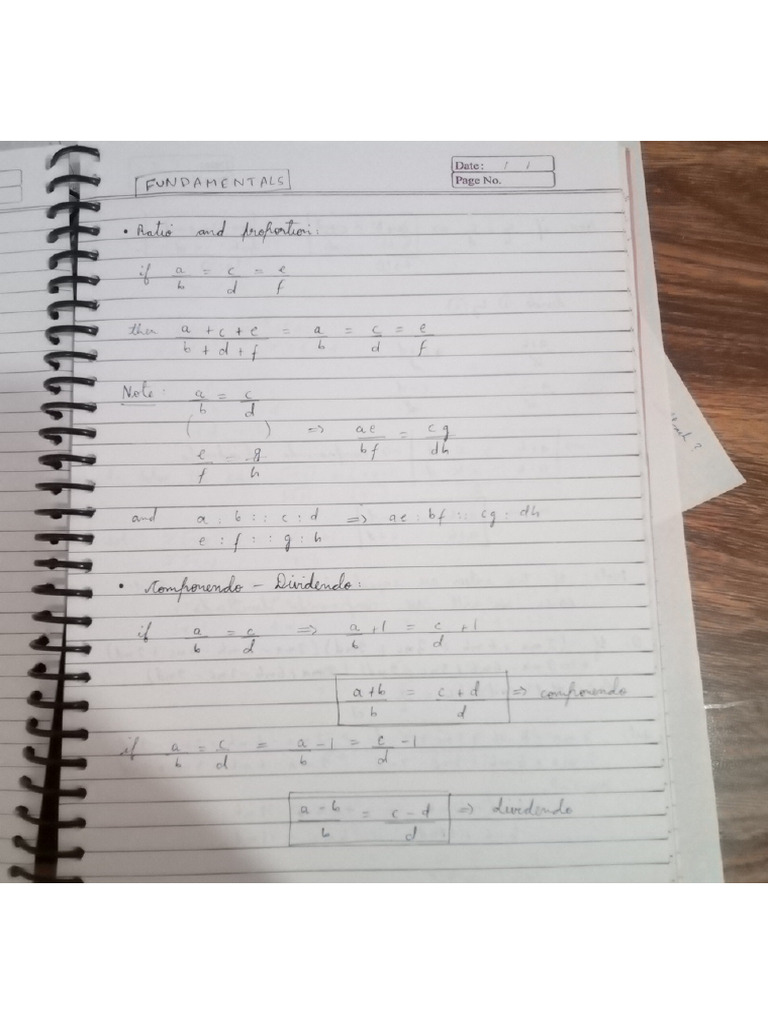 Date: / /
Page No.
FUNDAMENTALS
• Ratio and proportion:
if a/b = c/d = e/f
then (a + c + e)/(b + d + f) = a/b = c/d = e/f
Note: a/b = c/d
( ) => ae/bf = cg/dh
e/f = g/h
and a : b : : c : d => ae : bf :: cg : dh
e : f : : g : h
• Componendo - Dividendo:
if a/b = c/d => a/b + 1 = c/d + 1
(a+b)/b = (c+d)/d => componendo
if a/b = c/d = a/b - 1 = c/d - 1
(a-b)/b = (c-d)/d => dividendo